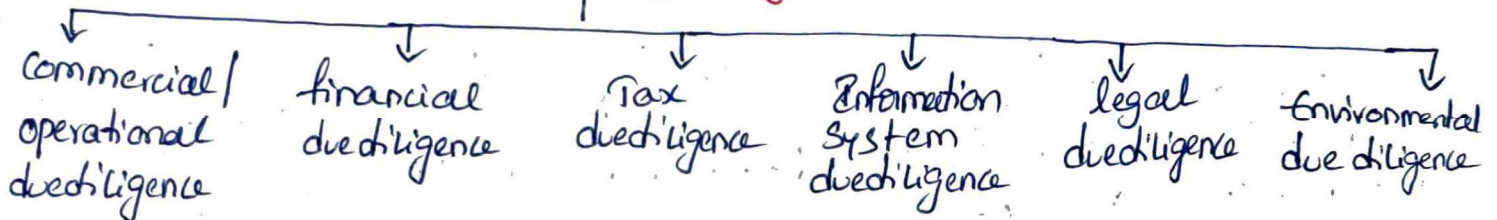 Commercial/
operational
due diligence
financial
due diligence
Tax
due diligence
Information
System
due diligence
legal
due diligence
Environmental
due diligence